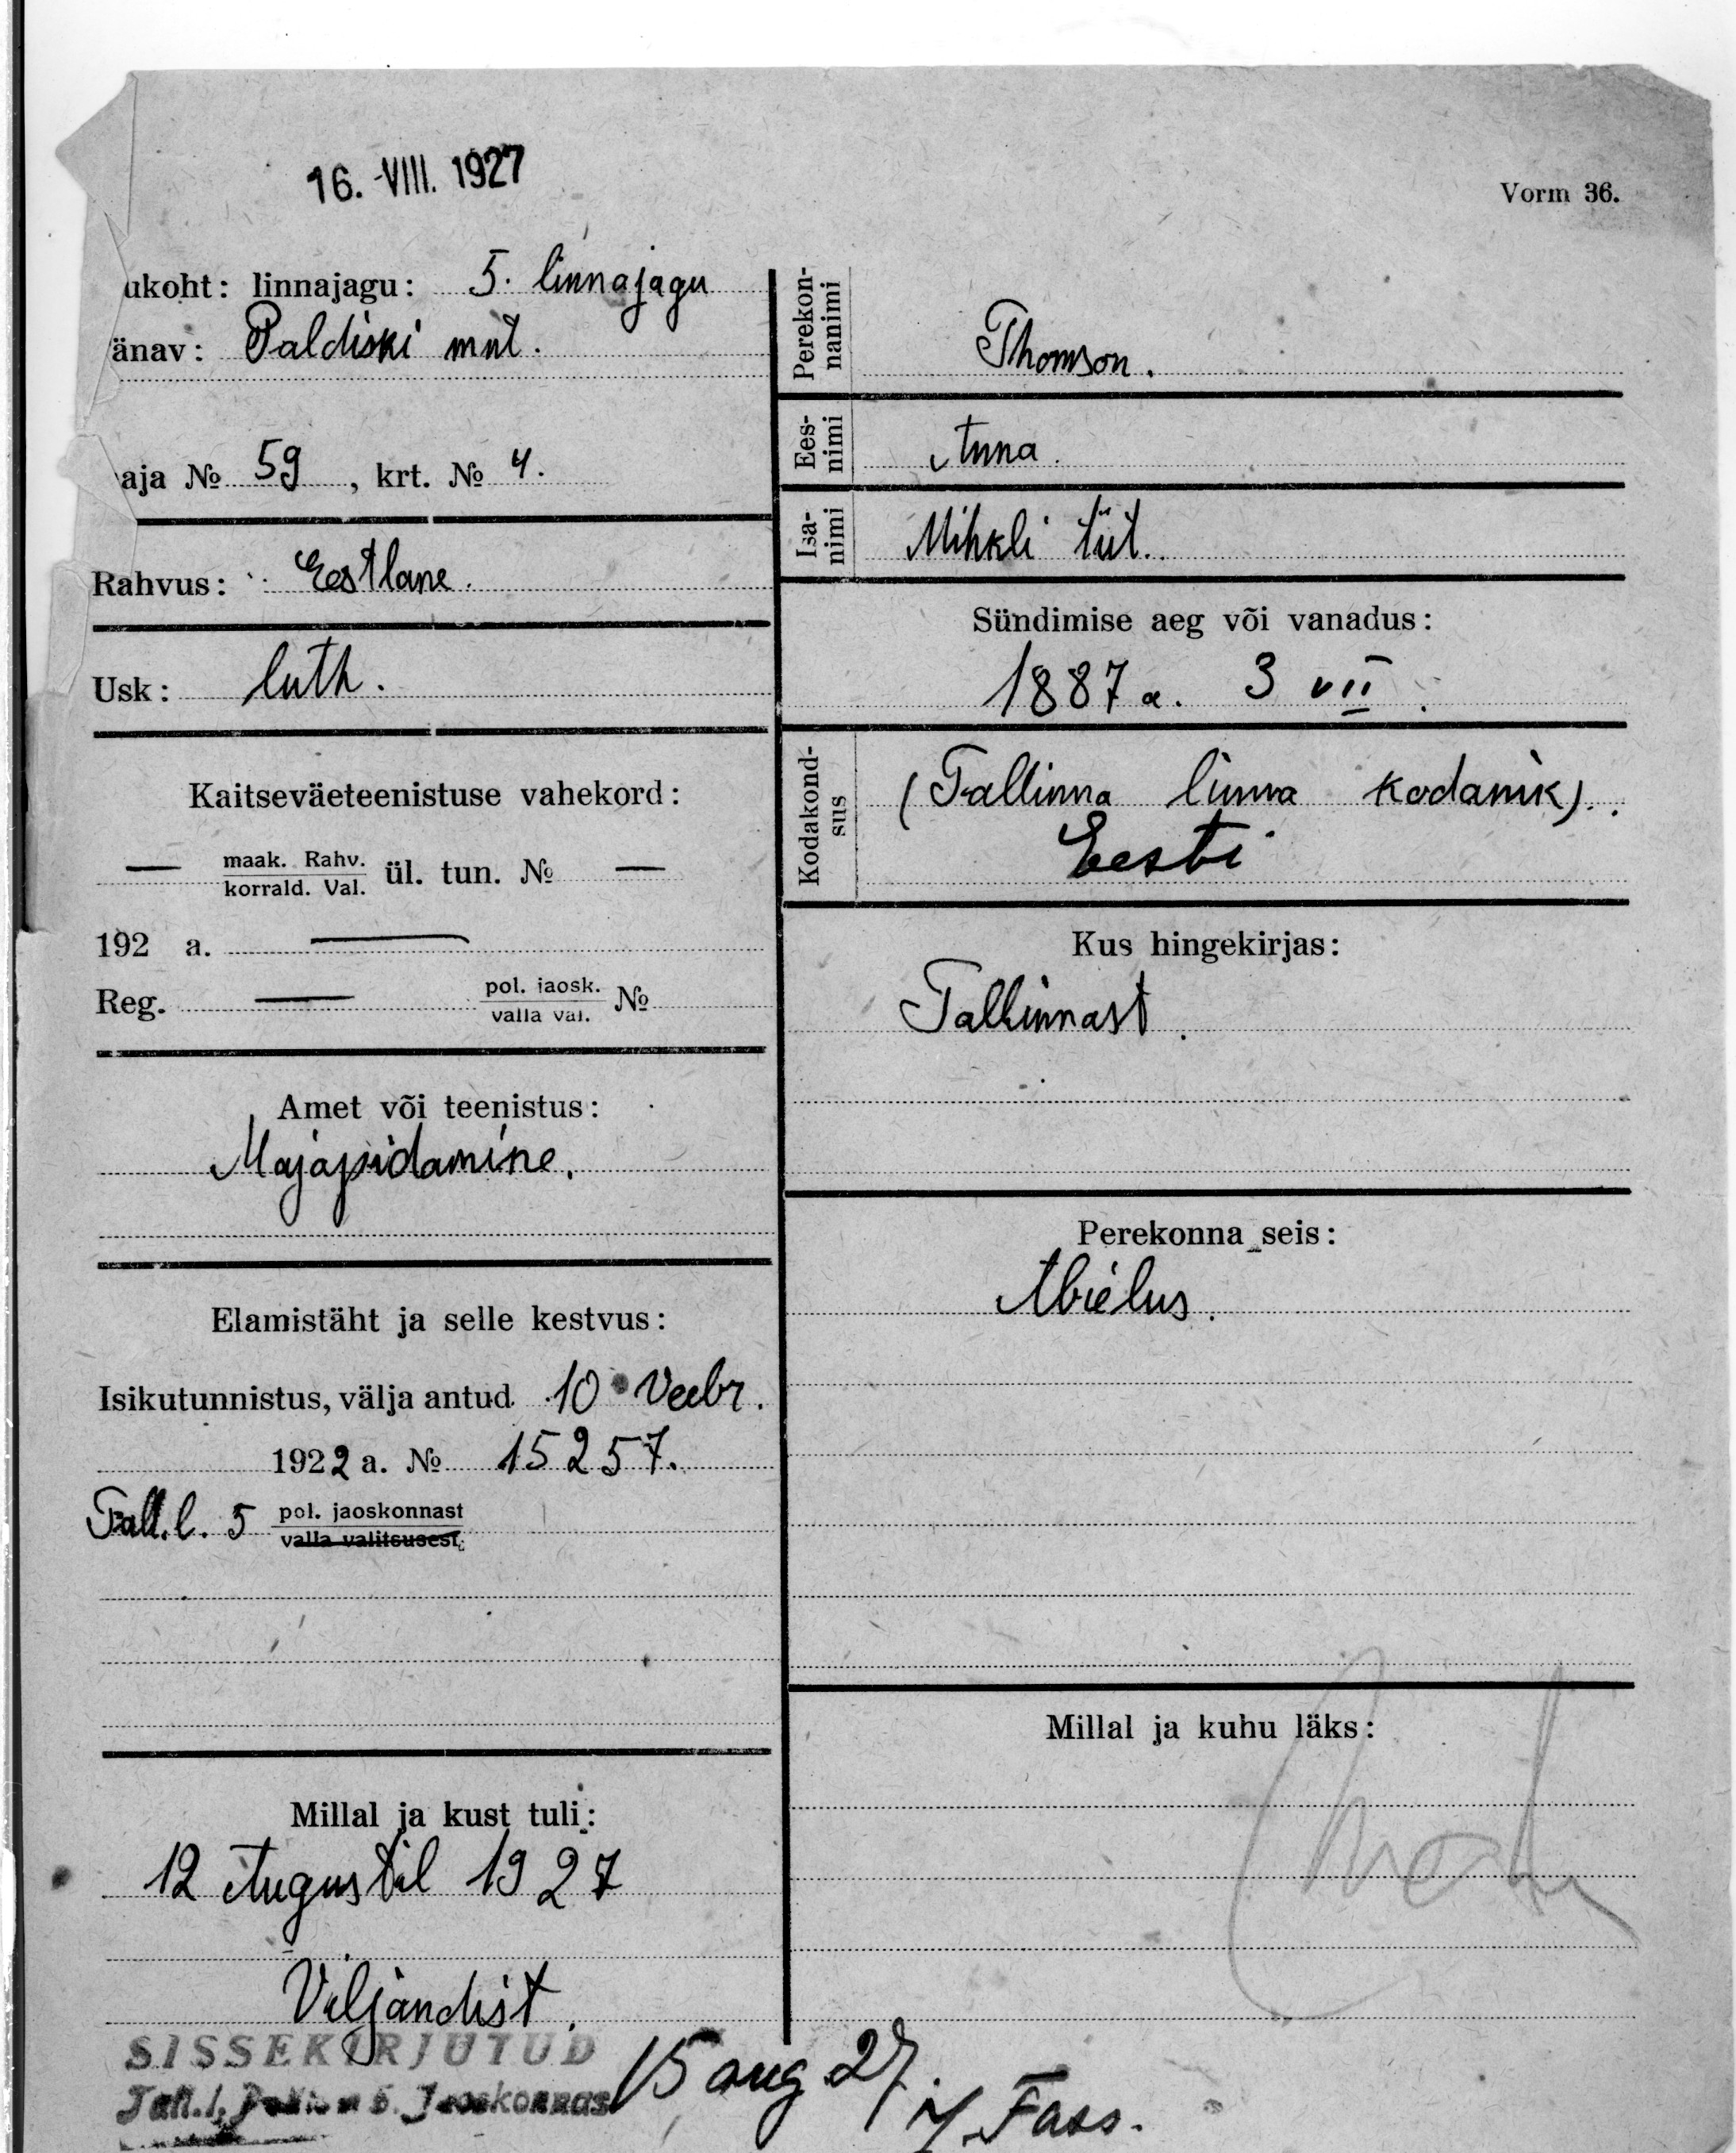 16. VIII. 1927
Vorm 36.
ukoht: linnajagu: 5. linnajagu
änav: Paldiski mnt.
aja № 59, krt. № 4.
Rahvus: Eestlane.
Usk: luth.
Kaitseväeteenistuse vahekord:
— maak. Rahv. ül. tun. № —
korrald. Val.
192 a. —
Reg. — pol. jaosk. №
valla val.
Amet või teenistus:
Majapidamine.
Elamistäht ja selle kestvus:
Isikutunnistus, välja antud 10 Veebr.
1922 a. № 15257.
Tall. l. 5 pol. jaoskonnast
valla valitsusest
Millal ja kust tuli:
12 Augustil 1927
Viljandist.
Perekonnanimi
Thomson.
Eesnimi
Anna.
Isanimi
Mihkli tüt.
Sündimise aeg või vanadus:
1887 a. 3 VII.
Kodakondsus
(Tallinna linna kodanik).
Eesti
Kus hingekirjas:
Tallinnast.
Perekonna seis:
Abielus.
Millal ja kuhu läks:
SISSEKIRJUTUD
Tall. l. 5. Jaoskonnas
15 aug 27.